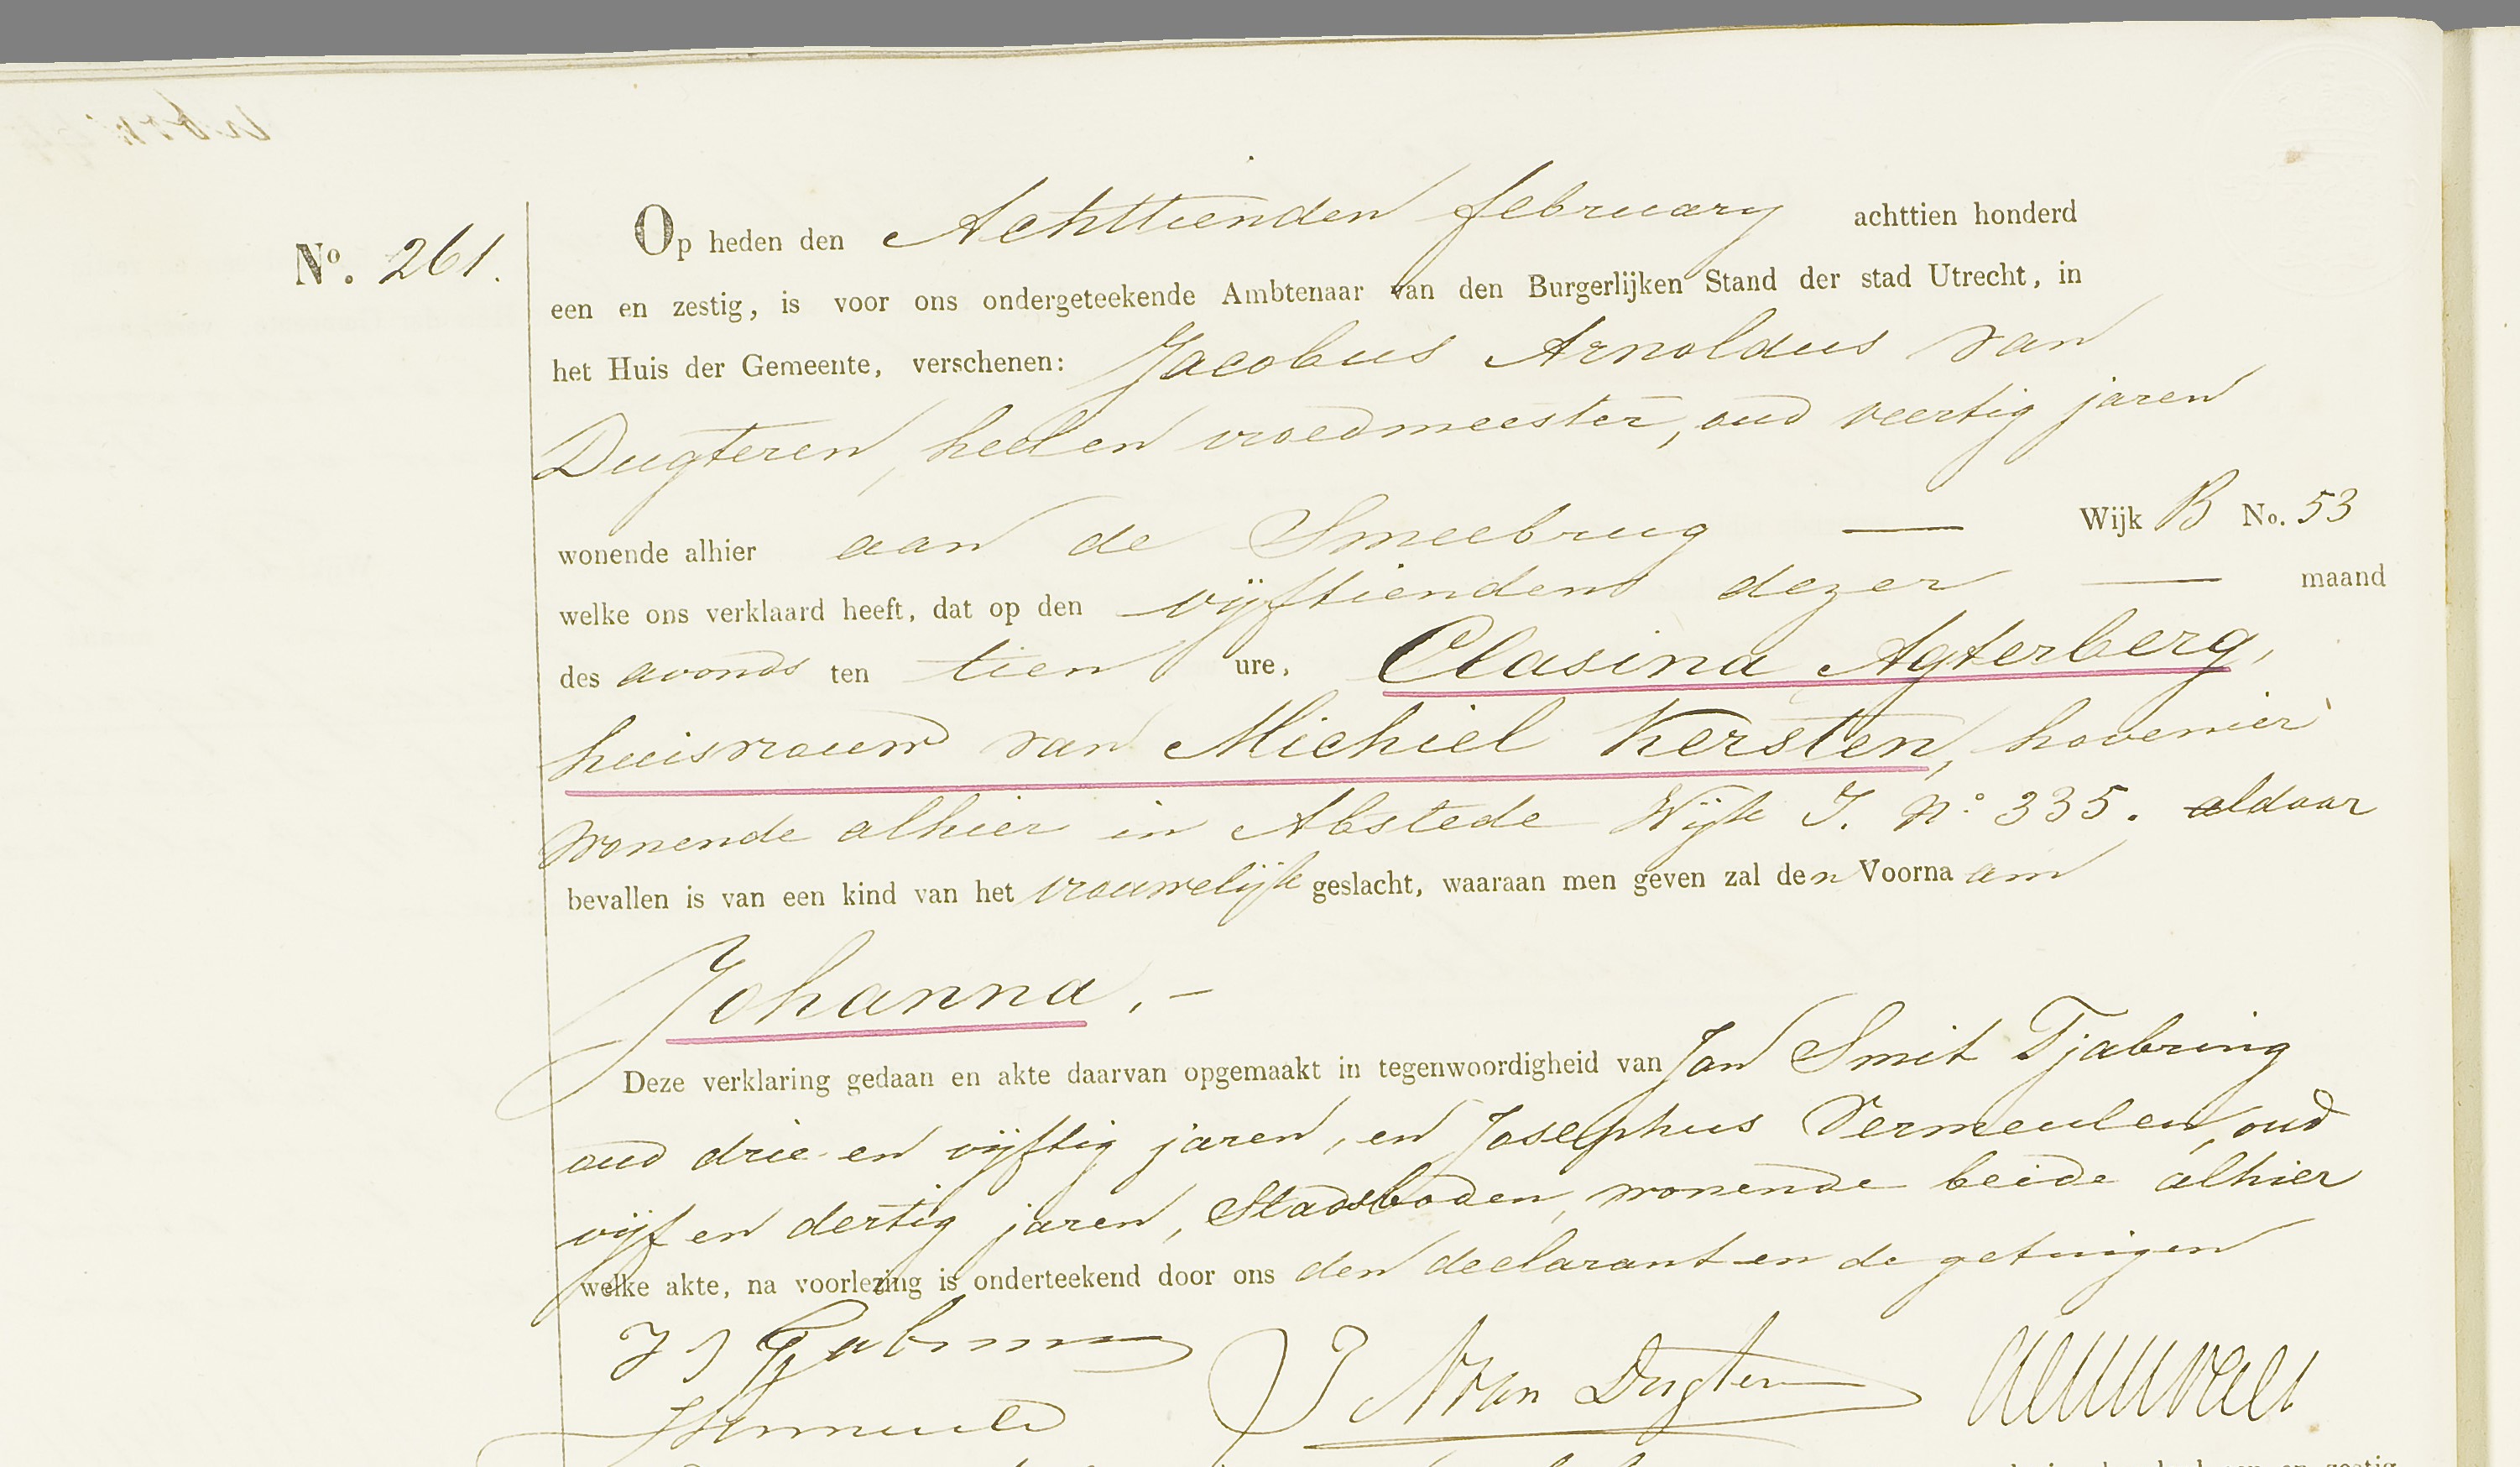 No. 261.
Op heden den Achttienden february achttien honderd
een en zestig, is voor ons ondergeteekende Ambtenaar van den Burgerlijken Stand der stad Utrecht, in
het Huis der Gemeente, verschenen: Jacobus Arnoldus van
Dugteren, heel en vroedmeester, oud veertig jaren
wonende alhier aan de Smeebrug — Wijk B No. 53
welke ons verklaard heeft, dat op den vijftienden dezer — maand
des avonds ten tien ure, Clasina Agterberg,
huisvrouw van Michiel Kersten, hovenier
wonende alhier in Abstede Wijk I. No 335. aldaar
bevallen is van een kind van het vrouwelijk geslacht, waaraan men geven zal den Voornaam
Johanna. —
Deze verklaring gedaan en akte daarvan opgemaakt in tegenwoordigheid van Jan Smit Tjabring
oud drie en vijftig jaren, en Josephus Vermeulen, oud
vijf en dertig jaren, Stadsboden, wonende beide alhier
welke akte, na voorlezing is onderteekend door ons den declarant en de getuigen
J A van Dugteren